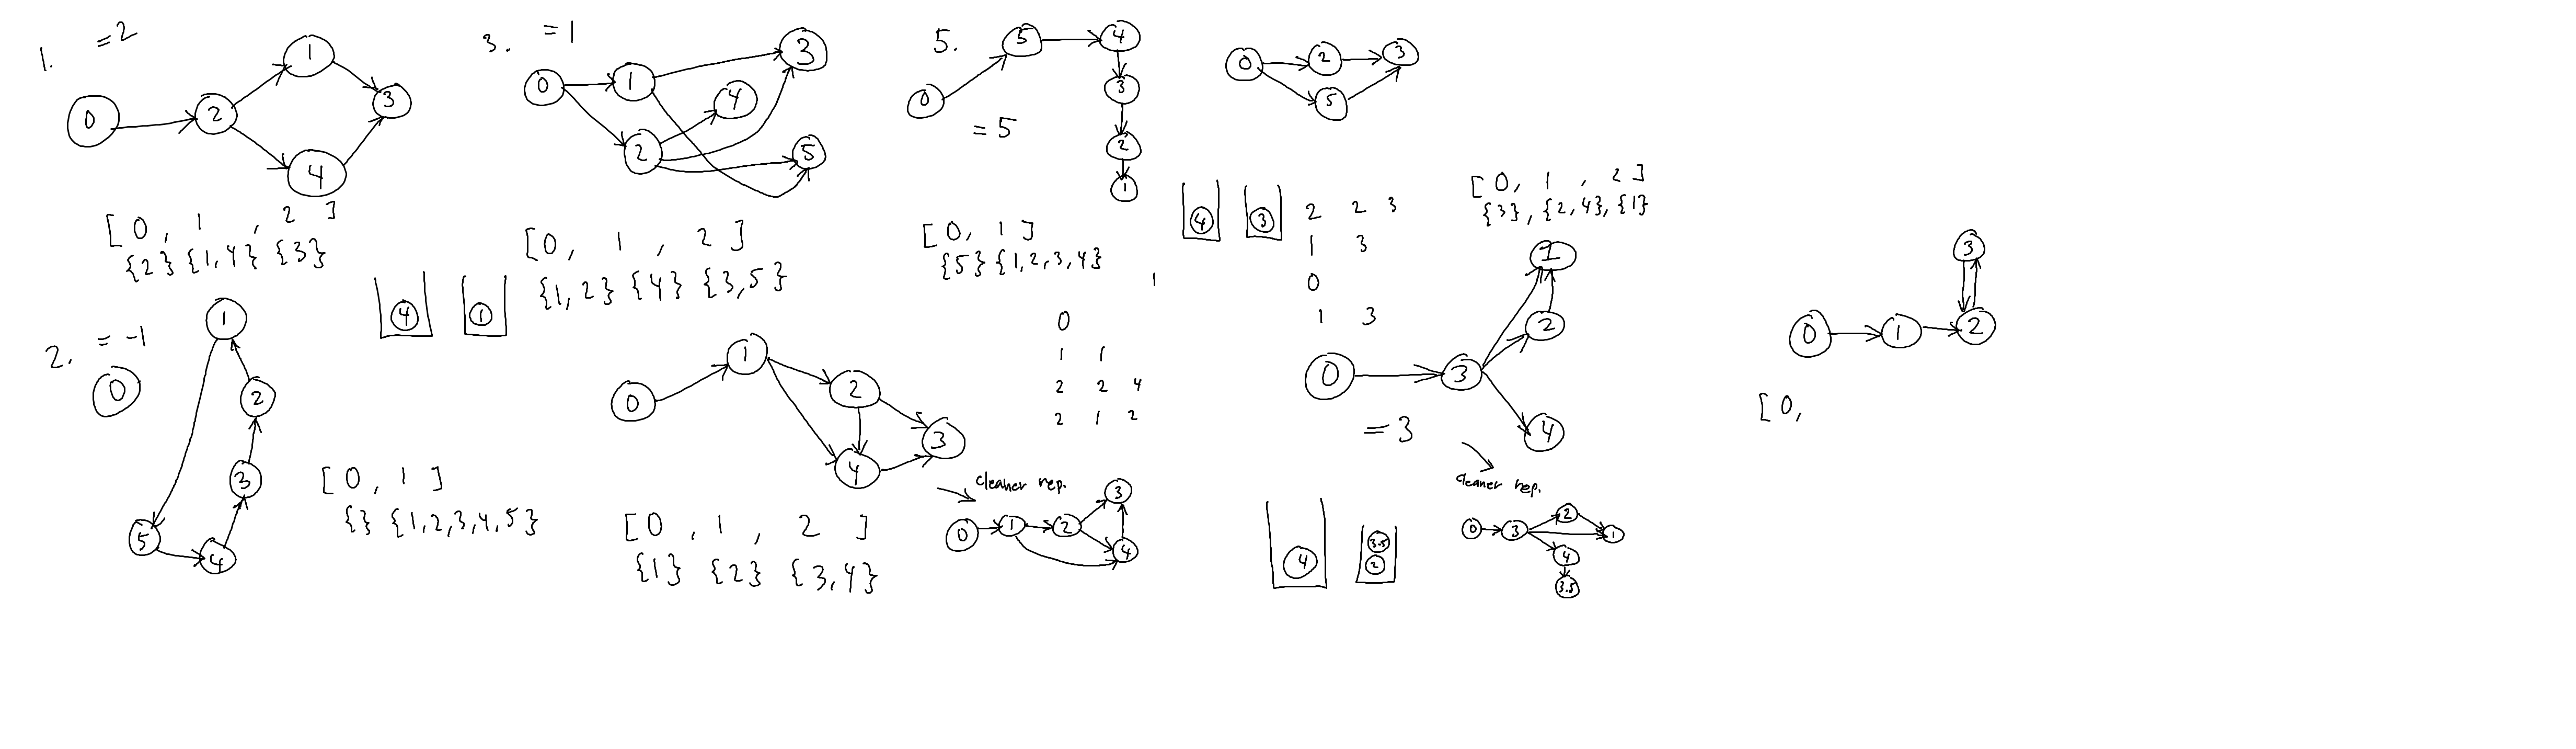 1. =2
0 2 1 3 4
[0, 1, 2]
{2} {1,4} {3}
2. =-1
0 1 2 3 4 5
[0, 1]
{} {1,2,3,4,5}
4 1
3. =1
0 1 2 3 4 5
[0, 1, 2]
{1,2} {4} {3,5}
0 1 2 3 4
[0, 1, 2]
{1} {2} {3,4}
cleaner rep.
0 1 2 3 4
5.
0 5 4 3 2 1
=5
[0, 1]
{5} {1,2,3,4}
1
0
1 1
2 2 4
2 1 2
0 2 3 5
4 3
2 2 3
1 3
0
1 3
[0, 1, 2]
{3}, {2,4}, {1}
0 3 1 2 4
=3
cleaner rep.
0 3 2 1 4 3.5
4 3.5 2
0 1 2 3
[0,